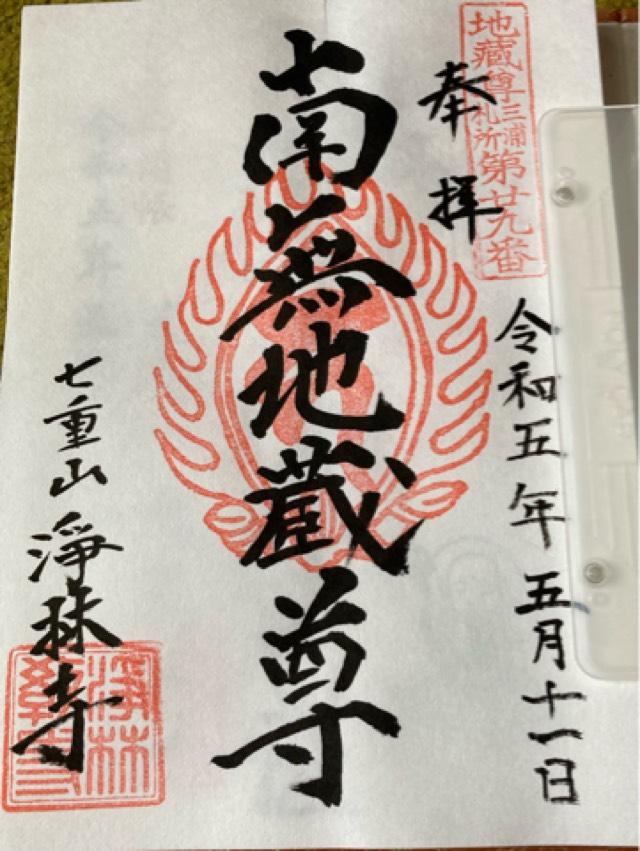 地蔵尊三浦札所第廿九番
奉拝
令和五年五月十一日
南無地蔵尊
七重山 淨林寺
淨林